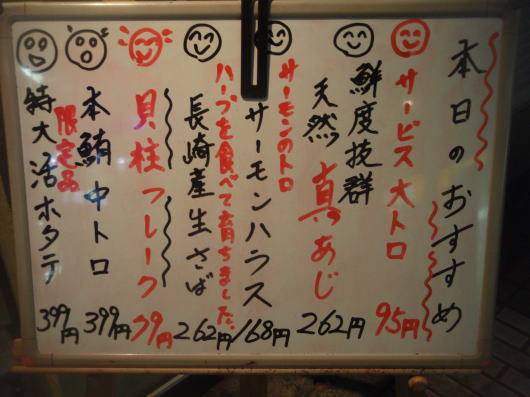 本日のおすすめ
サービス大トロ 95円
鮮度抜群
天然真あじ 262円
サーモンのトロ
サーモンハラス 168円
ハーブを食べて育ちました。
長崎産生さば 262円
貝柱フレーク 79円
本鮪中トロ 399円
限定品
特大活ホタテ 399円